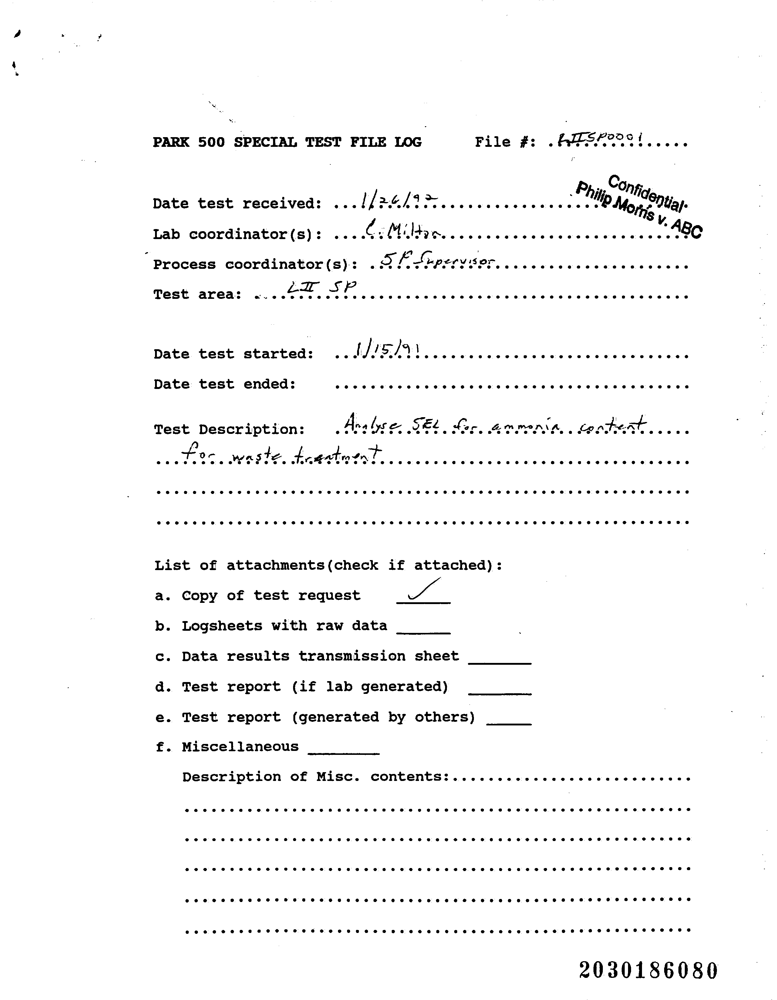 PARK 500 SPECIAL TEST FILE LOG File #: LIISP0001
Confidential
Philip Morris v. ABC
Date test received: 1/26/92
Lab coordinator(s): C. Milton
Process coordinator(s): SP Supervisor
Test area: LII SP
Date test started: 1/15/91
Date test ended:
Test Description: Analyse SEL for ammonia content
for waste treatment
List of attachments(check if attached):
a. Copy of test request ✓
b. Logsheets with raw data
c. Data results transmission sheet
d. Test report (if lab generated)
e. Test report (generated by others)
f. Miscellaneous
Description of Misc. contents:
2030186080